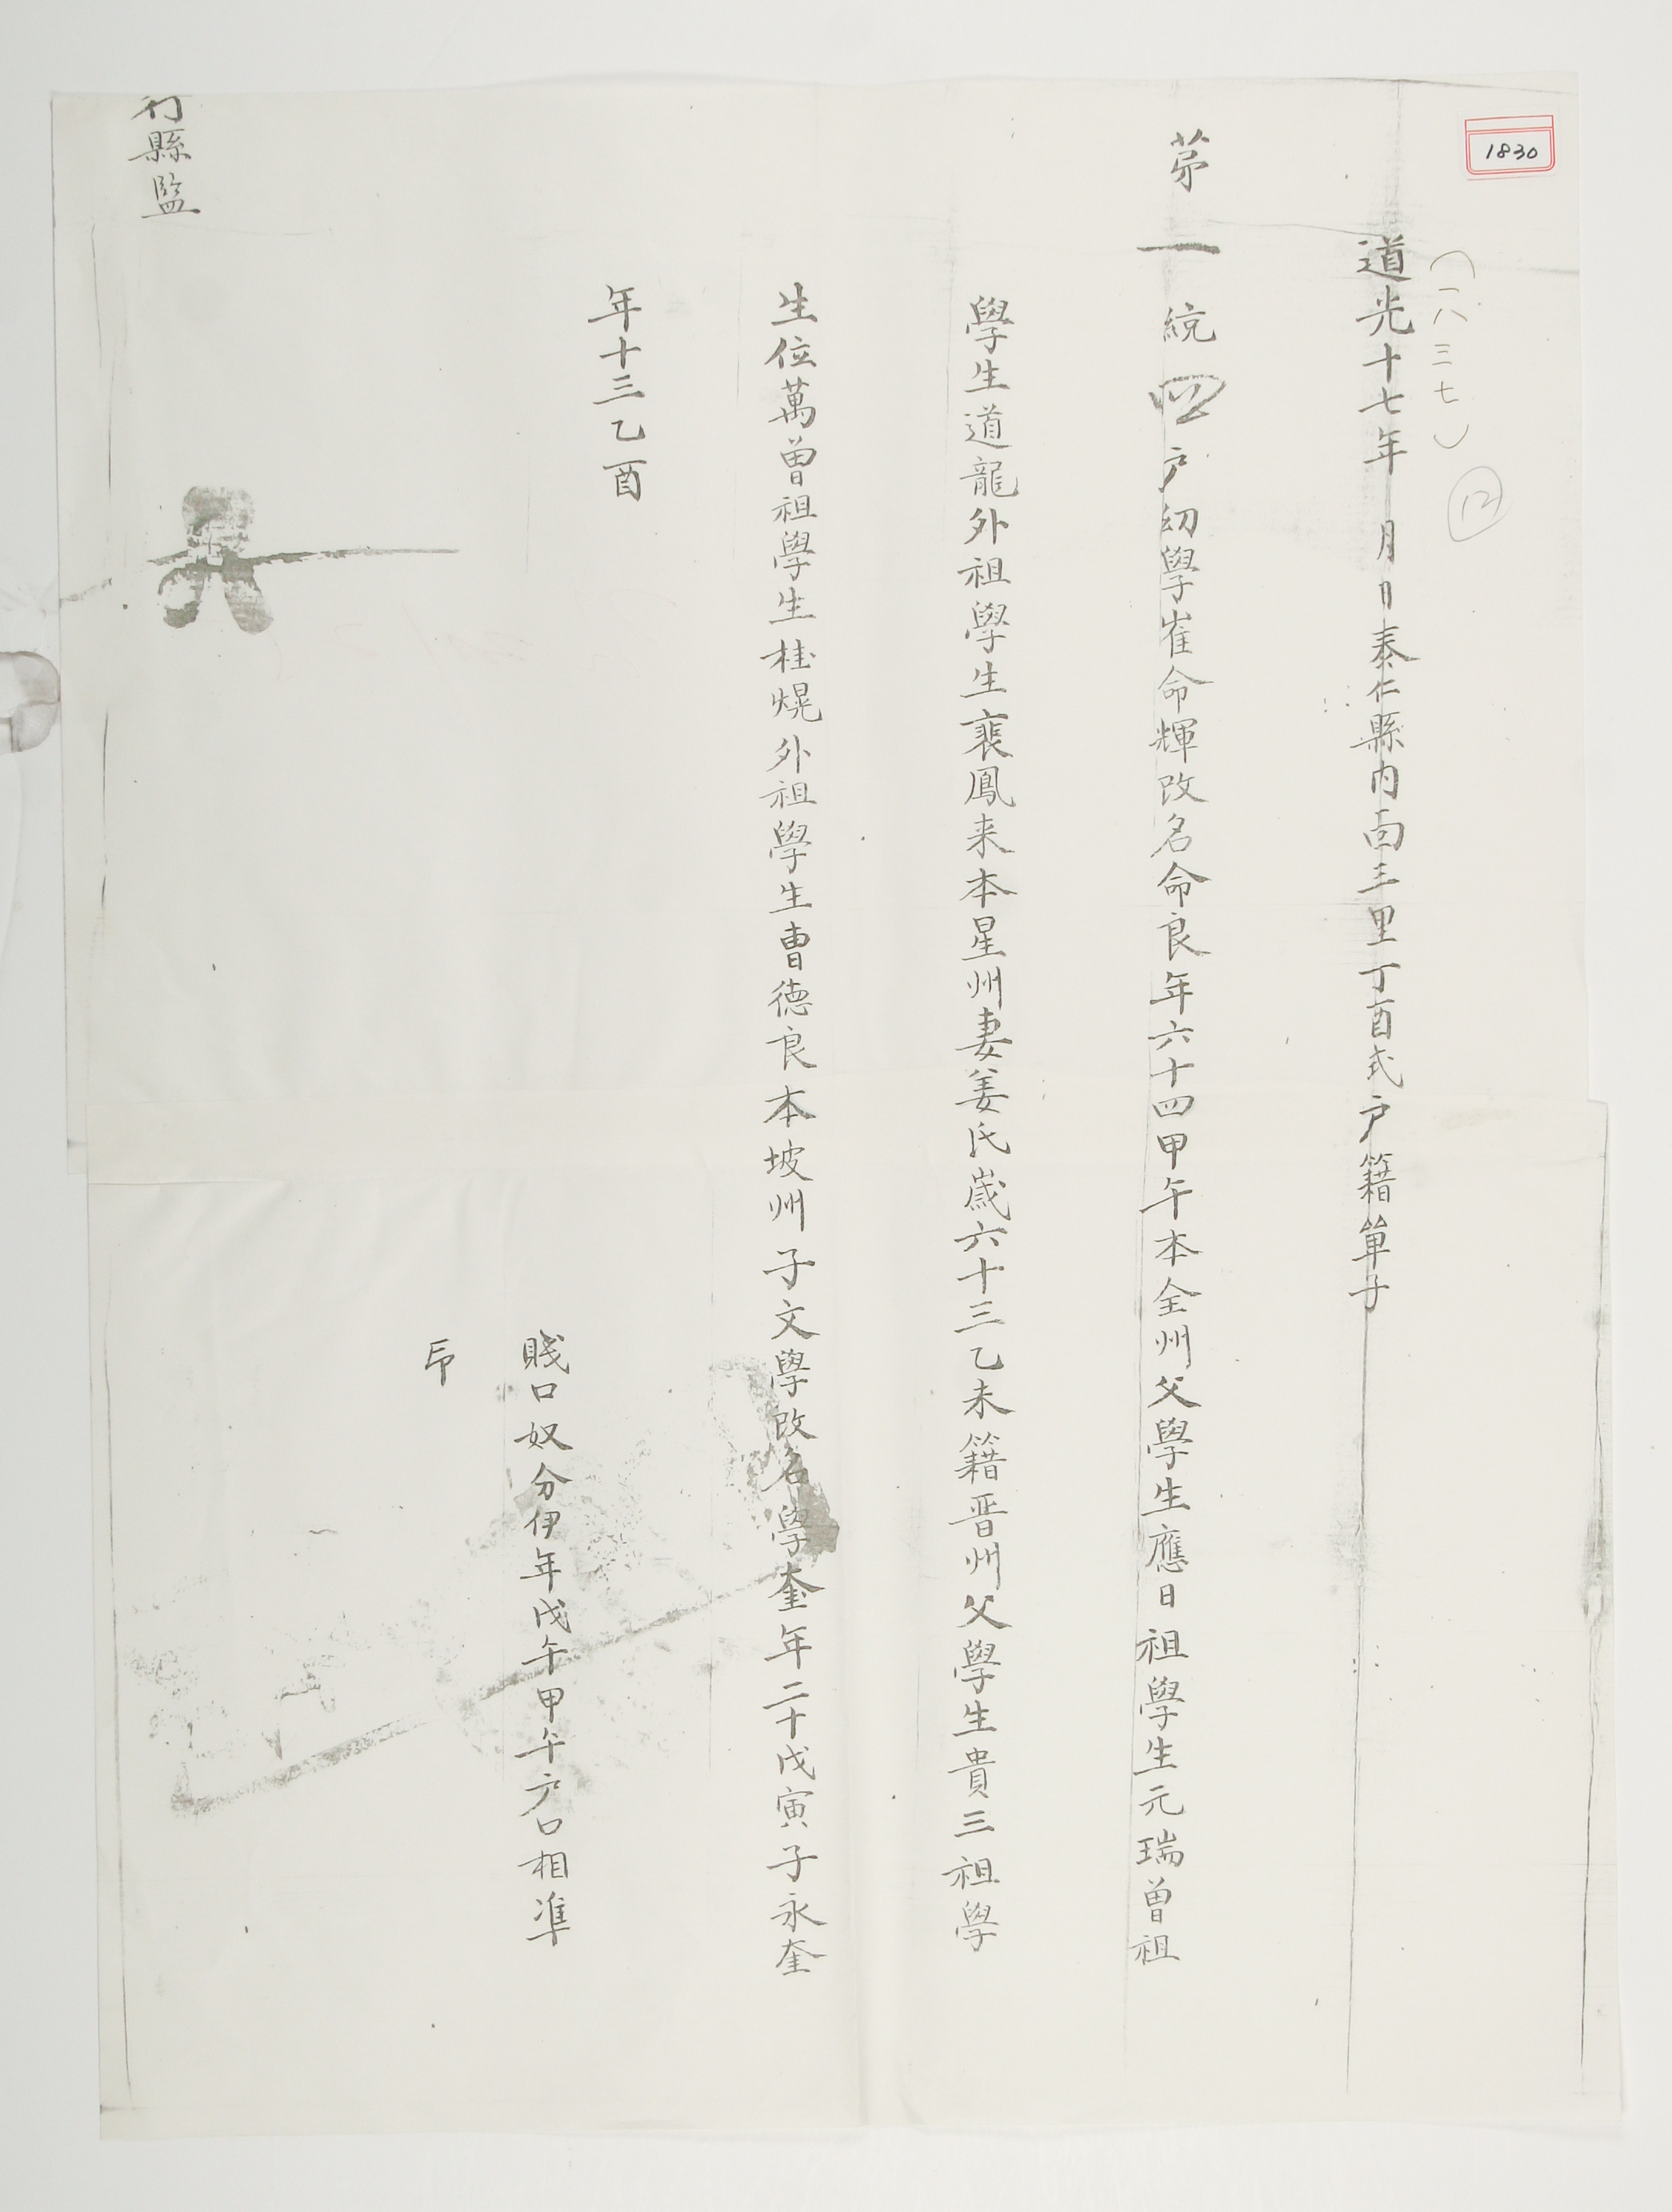 1830
(一八三七)
12
道光十七年 月 日泰仁縣內面三里丁酉式戶籍單子
苐一統四戶幼學崔命輝改名命良年六十四甲午本全州父學生應日祖學生元瑞曾祖
學生道龍外祖學生裵鳳来本星州妻姜氏歲六十三乙未籍晋州父學生貴三祖學
生位萬曾祖學生桂熀外祖學生曺德良本坡州子文學改名學奎年二十戊寅子永奎
年十三乙酉
賤口奴分伊年戊午甲午戶口相準
印
行縣監